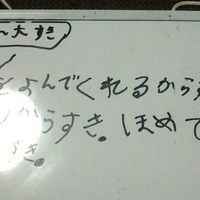 ん大すき
よんでくれるから
からすき。ほめて
き。